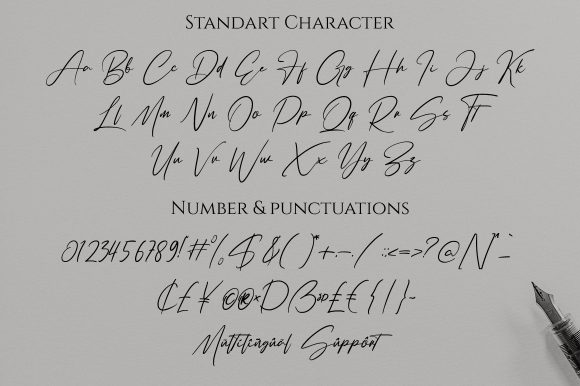 Standart Character
Aa Bb Cc Dd Ee Ff Gg Hh Ii Jj Kk
Ll Mm Nn Oo Pp Qq Rr Ss Tt
Uu Vv Ww Xx Yy Zz
Number & punctuations
0123456789!#%$&()*+,-./:;<=>?@
Multilingual Support